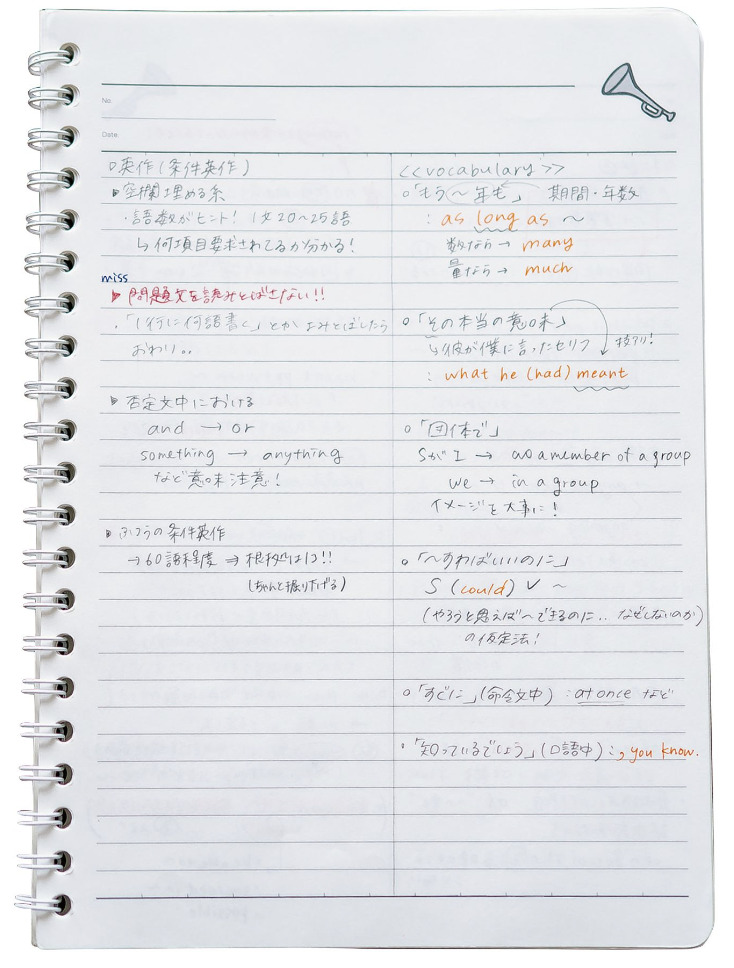 No.
Date.
□英作(条件英作)
▶空欄埋める系
・語数がヒント! 1文20〜25語
↳何項目要求されてるか分かる!
miss
▶問題文を読みとばさない!!
・「1行に何語書く」とか よみとばしたら
おわり..
▶否定文中における
and → or
something → anything
など意味注意!
▶ふつうの条件英作
→60語程度 ⇒ 根拠は1コ!!
(ちゃんと掘り下げる)
<<vocabulary>>
○「もう〜年も」 期間・年数
: as long as 〜
数なら→ many
量なら→ much
○「その本当の意味」
↳彼が僕に言ったセリフ 技アリ!
: what he (had) meant
○「団体で」
SがI → as a member of a group
we → in a group
イメージを大事に!
○「〜すればいいのに」
S (could) V 〜
(やろうと思えば〜できるのに.. なぜしないのか)
の仮定法!
○「すぐに」(命令文中) : at once など
○「知っているでしょう」(口語中) : , you know.